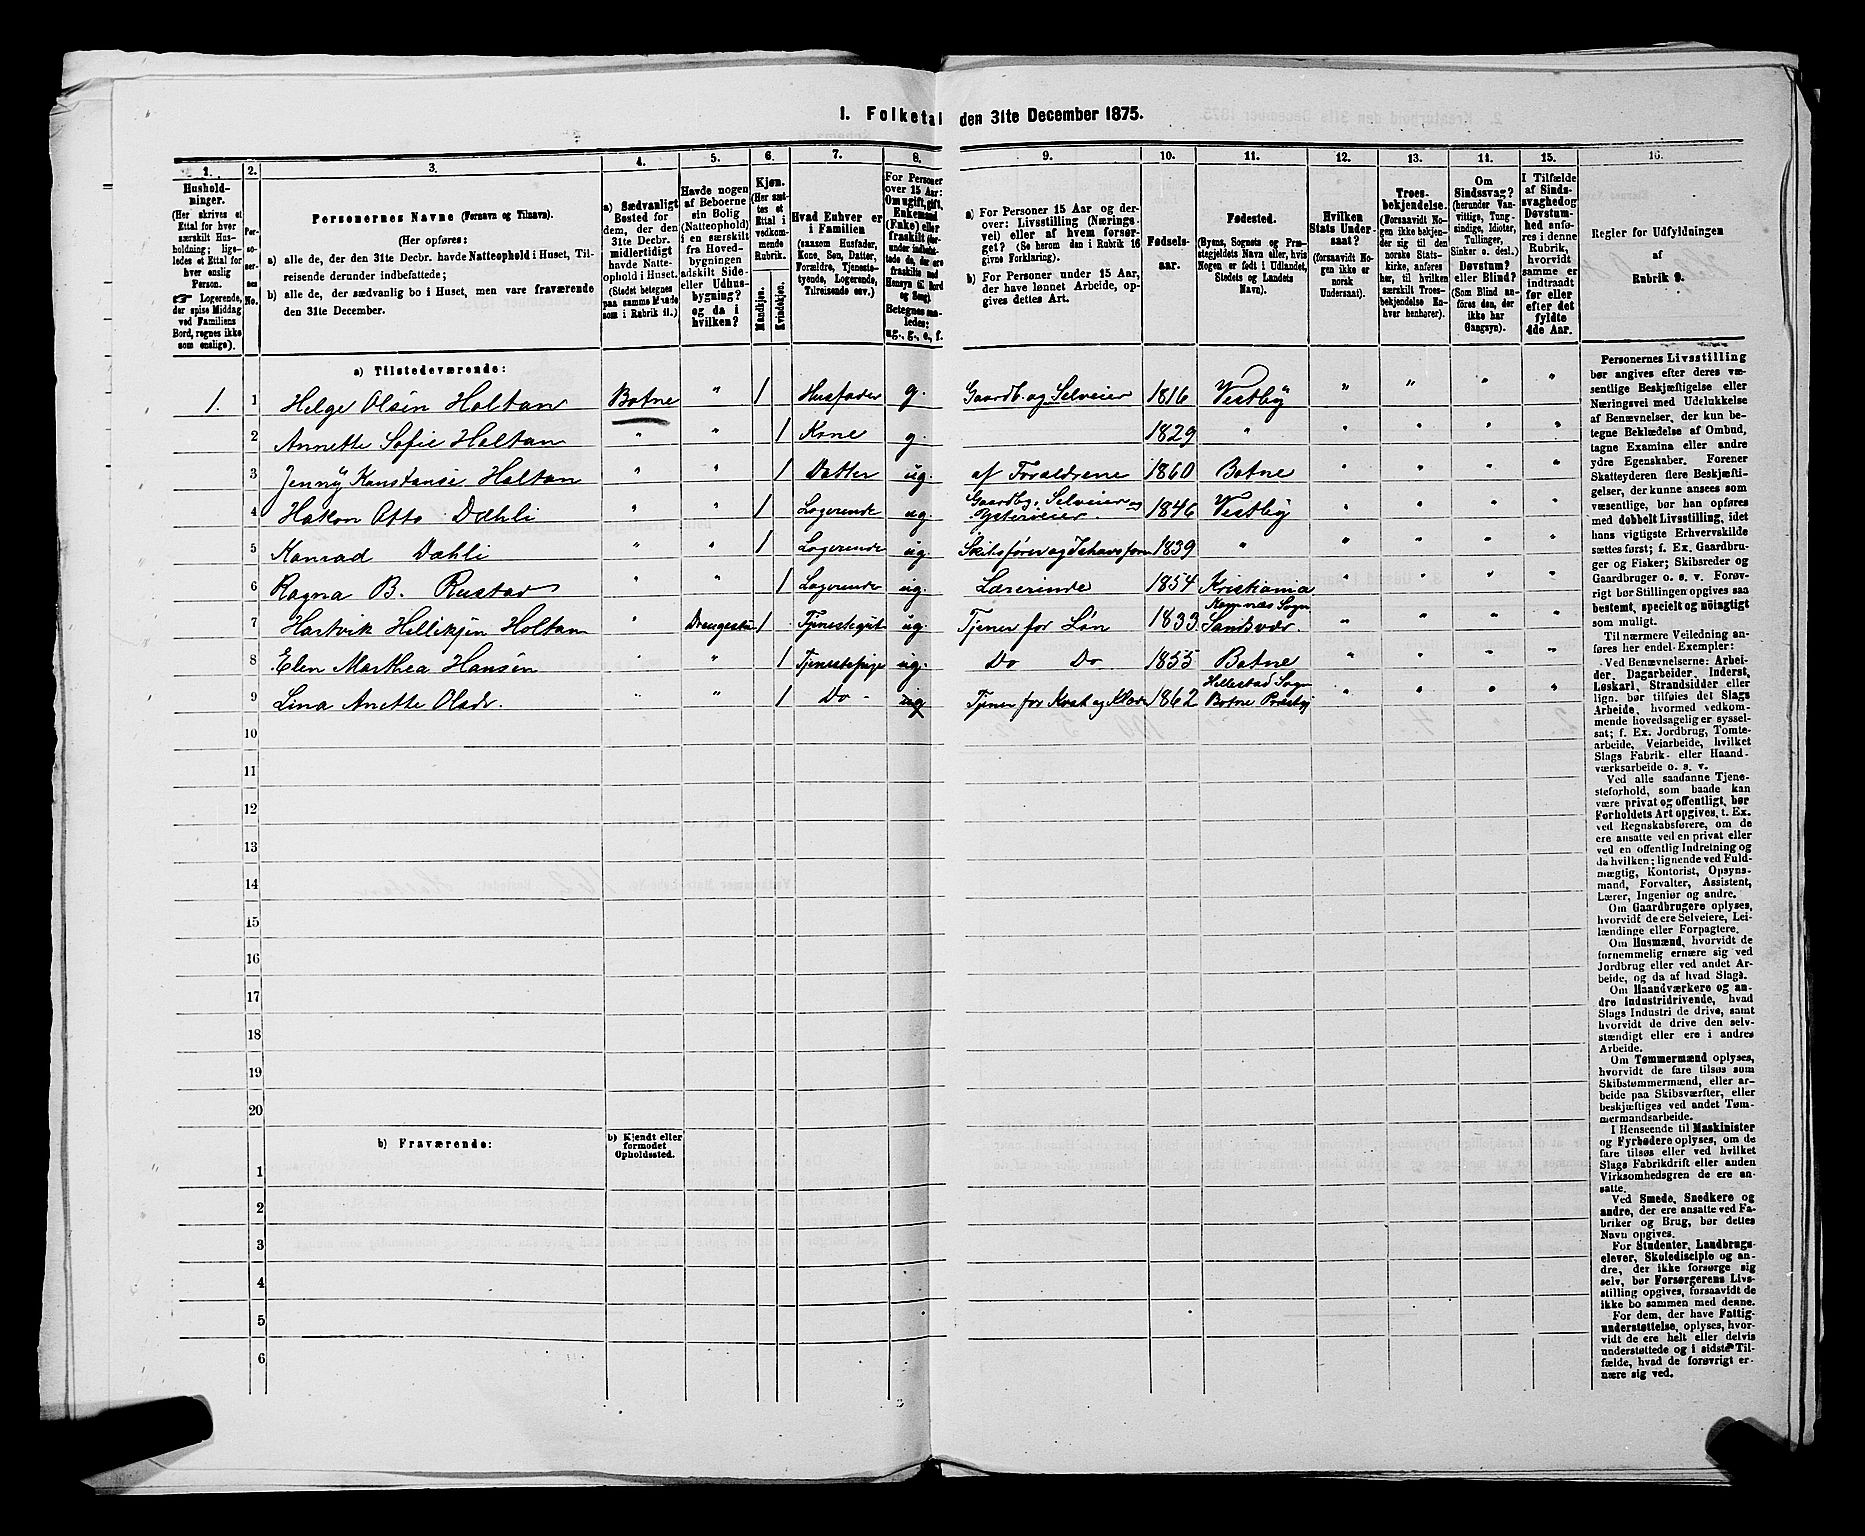 1. Folketal den 31te December 1875.
1.
Hushold-
ninger.
(Her skrives et
Ettal for hver
særskilt Hus-
holdning; lige-
ledes et Ettal for
hver enslig
Person.
☞ Logerende,
der spise Middag
ved Familiens
Bord, regnes ikke
som enslige).
2.
Per-
so-
ner-
nes
No.
3.
Personernes Navne (Fornavn og Tilnavn).
(Her opføres:
a) alle de, der den 31te Decbr. havde Natteophold i Huset, Til-
reisende derunder indbefattede;
b) alle de, der sædvanlig bo i Huset, men vare fraværende
den 31te December.
4.
a) Sædvanligt
Bosted for
dem, der den
31te Decbr.
midlertidigt
havde Natte-
ophold i Huset.
(Stedet betegnes
paa samme Maade
som i Rubrik 11.)
5.
Havde nogen
af Beboerne
sin Bolig
(Natteophold)
i en særskilt
fra Hoved-
bygningen
adskilt Side-
eller Udhus-
bygning? og da i
hvilken?
6.
Kjøn.
(Her sæt-
tes et
Ettal i
vedkom-
mende
Rubrik.
Mandkjøn.
Kvindekjøn.
7.
Hvad Enhver er
i Familien
(saasom Husfader,
Kone, Søn, Datter,
Forældre, Tjeneste-
tyende, Logerende,
Tilreisende osv.)
8.
For Personer
over 15 Aar:
Om ugift, gift,
Enkemand
(Enke) eller
fraskilt
Betegnes saa-
ledes:
ug., g., e., f.
9.
a) For Personer 15 Aar og der-
over: Livsstilling (Nærings-
vei) eller af hvem forsør-
get? (Se herom den i Rubrik 16
givne Forklaring).
b) For Personer under 15 Aar,
der have lønnet Arbeide, op-
gives dettes Art.
10.
Fødsels-
aar.
11.
Fødested.
(Byens, Sognets og Præ-
stegjeldets Navn eller, hvis
Nogen er født i Udlandet,
Stedets og Landets
Navn).
12.
Hvilken
Stats Under-
saat?
(forsaavidt No-
gen ikke er
norsk
Undersaat).
13.
Troes-
bekjendelse.
(Forsaavidt No-
gen ikke bekjen-
der sig til den
norske Stats-
kirke, anføres
her, til hvilken
særskilt Troes-
bekjendelse En-
hver henhører).
14.
Om
Sindssvag?
(herunder Van-
vittige, Tung-
sindige, Idioter,
Tullinger,
Sinker o. desl.)
Døvstum?
eller Blind?
(Som Blind an-
føres den, der
ikke har
Gangsyn).
15.
I Tilfælde
af Sinds-
svaghed og
Døvstum-
hed anfø-
res i denne
Rubrik,
hvorvidt
samme er
indtraadt
før eller
efter det
fyldte
4de Aar.
16.
Regler for Udfyldningen
af
Rubrik 9.
a) Tilstedeværende:
1. 1 Helge Olsen Holtan Botne " 1 Husfader g. Gaardb. og Selveier 1816 Vestby " " " "
2 Annette Sofie Holtan " " 1 Kone g. 1829 " " " " "
3 Jenny Konstanse Holtan " " 1 Datter ug. af Forældrene 1860 Botne " " " "
4 Hakon Otto Dæhli " " 1 Logerende ug. Gaardbg. Selveier og 1846 Vestby " " " "
5 Konrad Dæhli " " 1 Logerende ug. Skibsfører og Ishavsfarer 1839 " " " " "
6 Ragna B. Rustad " " 1 Logerende ug. Lærerinde 1854 Kristiania " " " "
7 Hartvik Hellikjen Holtan " Drengestu 1 Tjenestegut ug. Tjener for Løn 1833 Komnæs Sogn Sandsvær. " " "
8 Elen Marthea Hansen " " 1 Tjenestepige ug. Do Do 1855 Botne " " " "
9 Lina Anette Olsdr. " " 1 Do - ug Tjener for Kost og Klæder 1862 Hillestad Sogn Botne Præstgj " " " "
10
11
12
13
14
15
16
17
18
19
20
b) Fraværende:
b) Kjendt eller
formodet
Opholdssted.
1
2
3
4
5
6
Personernes Livsstilling
bør angives efter deres væ-
sentlige Beskjæftigelse eller
Næringsvei med Udelukkelse
af Benævnelser, der kun be-
tegne Beklædelse af Ombud,
tagne Examina eller andre
ydre Egenskaber. Forener
Skatteyderen flere Beskjæfti-
gelser, der kunne ansees som
væsentlige, bør han opføres
med dobbelt Livsstilling, idet
hans vigtigste Erhvervskilde
sættes først; f. Ex. Gaardbru-
ger og Fisker; Skibsreder og
Gaardbruger o. s. v. Forøv-
rigt bør Stillingen opgives saa
bestemt, specielt og nøiagtigt
som muligt.
Til nærmere Veiledning an-
føres her endel Exempler:
Ved Benævnelserne: Arbei-
der, Dagarbeider, Inderst,
Løskarl, Strandsidder eller
lign. bør tilføies det Slags
Arbeide, hvormed vedkom-
mende hovedsagelig er syssel-
sat; f. Ex. Jordbrug, Tomte-
arbeide, Veiarbeide, hvilket
Slags Fabrik- eller Haand-
værksarbeide o. s. v.
Ved alle saadanne Tjene-
steforhold, som baade kan
være privat og offentligt, bør
Forholdets Art opgives, t. Ex.
ved Regnskabsførere, om de
ere ansatte ved en privat eller
ved en offentlig Indretning og
da hvilken; lignende ved Fuld-
mægtig, Kontorist, Opsyns-
mand, Forvalter, Assistent,
Lærer, Ingeniør og andre.
Om Gaardbrugere oplyses,
hvorvidt de ere Selveiere, Lei-
lændinge eller Forpagtere.
Om Husmænd, hvorvidt de
fornemmelig ernære sig ved
Jordbrug eller ved andet Ar-
beide, og da af hvad Slags.
Om Haandværkere og an-
dre Industridrivende, hvad
Slags Industri de drive, samt
hvorvidt de drive den selv-
stændigt eller ere i andres
Arbeide.
Om Tømmermænd oplyses,
hvorvidt de fare tilsøs som
Skibstømmermænd, eller ar-
beide paa Skibsværfter, eller
beskjæftiges ved andet Tøm-
mermandsarbeide.
I Henseende til Maskinister
og Fyrbødere oplyses, om de
fare tilsøs eller ved hvilket
Slags Fabrikdrift eller anden
Virksomhedsgren de ere an-
satte.
Ved Smede, Snedkere og
andre, der ere ansatte ved Fa-
briker og Brug, bør dettes
Navn opgives.
For Studenter, Landbrugs-
elever, Skoledisciple og an-
dre, der ikke forsørge sig
selv, bør Forsørgerens Livs-
stilling opgives, forsaavidt de
ikke bo sammen med denne.
For dem, der have Fattig-
understøttelse, oplyses, hvor-
vidt de ere helt eller delvis
understøttede og i sidste Til-
fælde, hvad de forøvrigt er-
nære sig ved.